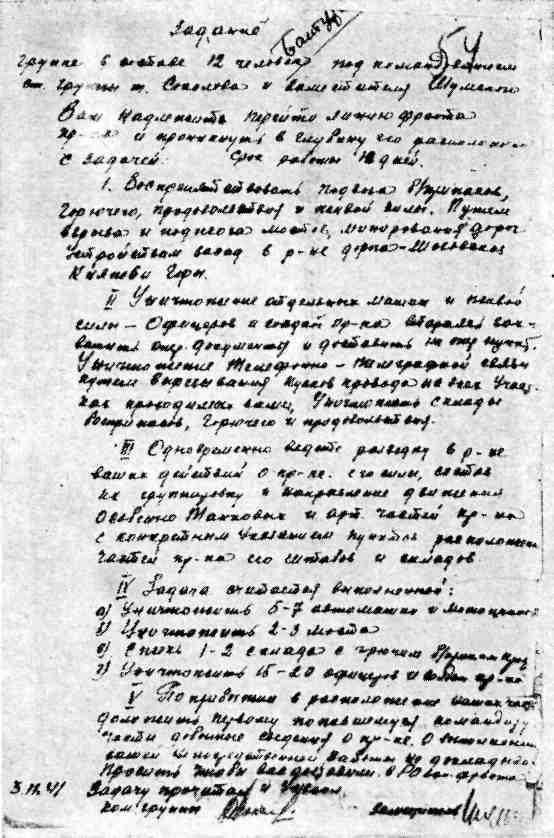 Задание
группе в составе 12 человек под командованием
ст. группы т. Соколова и заместителя Шумского
Вам надлежит перейти линию фронта
пр-ка и проникнуть в глубину его расположения
с задачей. Срок работы дней.
1. Воспрепятствовать подвоза боеприпасов,
Горючего, продовольствия и живой силы. Путем
взрыва и поджога мостов, минирования дорог
устройствам засад в р-не дорога –
Княжьи Горы.
II Уничтожение отдельных машин и живой
силы – Офицеров и солдат пр-ка
опер. документы и доставить на
Уничтожение Телефонно – телеграфной связи
путем вырезывания кусков провода на всех участ-
ках проводимых вами, Уничтожить склады
боеприпасов, Горючего и продовольствия.
III Одновременно ведете разведку в р-не
ваших действий о пр-ке. его силы, состав
их группировку и направление движения
Особенно Танковых и арт. частей пр-ка
с конкретным указанием пункта расположения
частей пр-ка его штабов и складов
IV Задача считается выполненной:
а) Уничтожить 5-7 автомашин и мотоциклов
б) Уничтожить 2-3 моста
в) Сжечь 1-2 склада с горючим
г) Уничтожить 15-20 офицеров и пр-ка
V По прибытии в расположение наших частей
доложить первому попавшемуся командиру
части данные сведения о пр-ке. О выполнении
вашей работы не докладывать
Просить чтобы вас доставили в РО фронта
3.11.41 Задачу прочитал и
ком группы заместитель